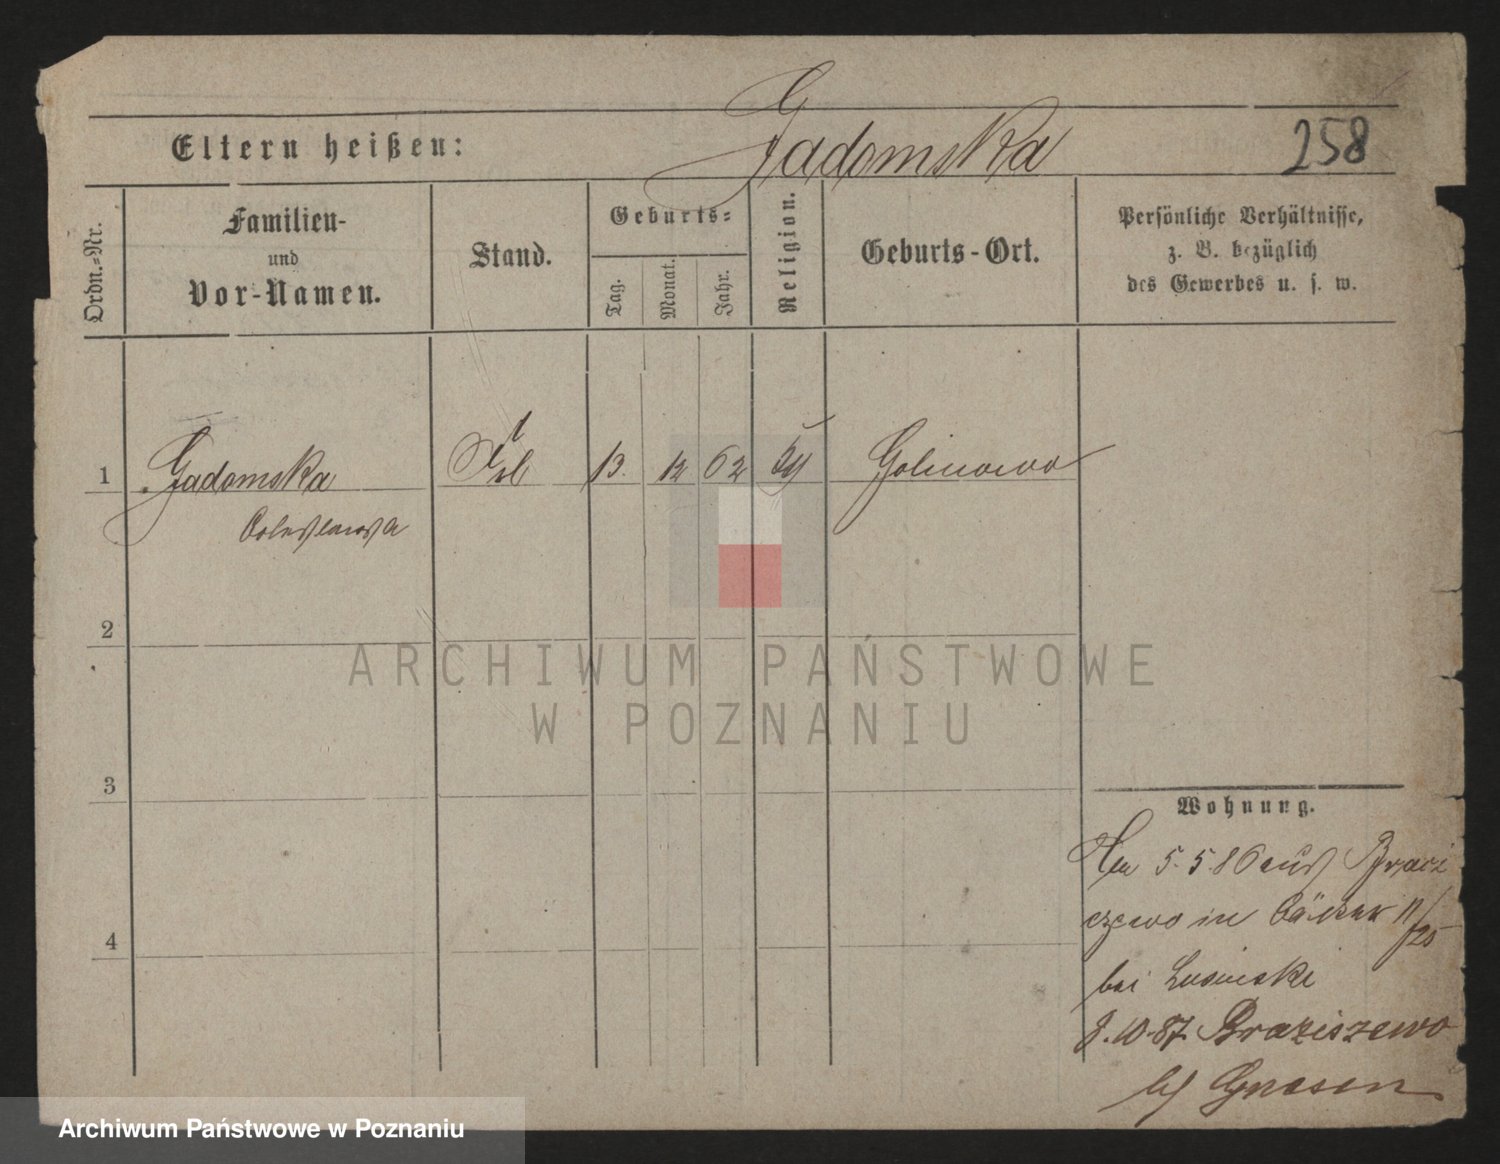 Gadomska
Eltern heißen:
258
Ordn.-Nr.
Familien-
und
Vor-Namen.
Stand.
Geburts-
Tag.
Monat.
Jahr.
Religion.
Geburts-Ort.
Persönliche Verhältnisse,
z. B. bezüglich
des Gewerbes u. s. w.
1 Gadomska 13. 12 62
Boleslawa
2
3
4
ARCHIWUM PAŃSTWOWE
W POZNANIU
Wohnung.
5.5.86 aus
in 11/25
bei
8.10.87. Braziszewo
Gnesen
Archiwum Państwowe w Poznaniu